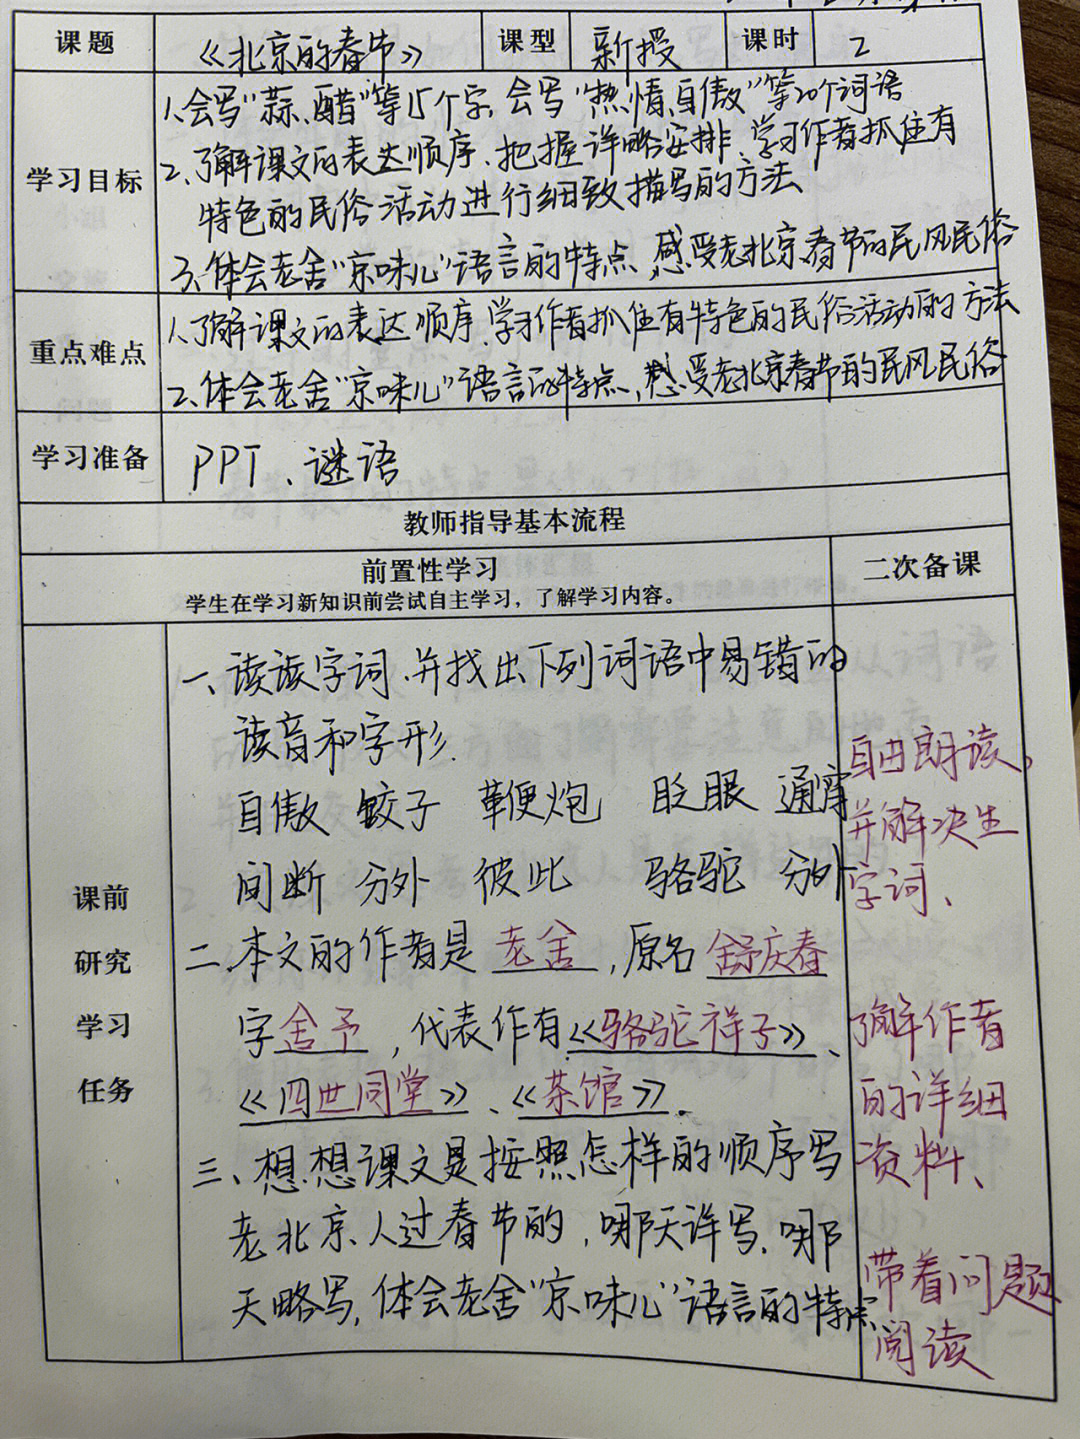 课题 《北京的春节》 课型 新授 课时 2
学习目标
1.会写"蒜、醋"等15个字,会写"热情、自傲"等20个词语
2.了解课文的表达顺序、把握详略安排、学习作者抓住有
特色的民俗活动进行细致描写的方法
3.体会老舍"京味儿"语言的特点,感受老北京春节的民风民俗
重点难点
1.了解课文的表达顺序,学习作者抓住有特色的民俗活动的方法
2.体会老舍"京味儿"语言的特点,感受老北京春节的民风民俗
学习准备 PPT、谜语
教师指导基本流程
前置性学习
学生在学习新知识前尝试自主学习,了解学习内容。
二次备课
课前
研究
学习
任务
一、读读字词,并找出下列词语中易错的
读音和字形.
自傲 饺子 鞭炮 眨眼 通宵
间断 分外 彼此 骆驼 分外
二、本文的作者是 老舍 ,原名 舒庆春
字舍予 ,代表作有《骆驼祥子》、
《四世同堂》、《茶馆》.
三、想想课文是按照怎样的顺序写
老北京人过春节的,哪天详写,哪
天略写,体会老舍"京味儿"语言的特点
自由朗读,
并解决生
字词、
了解作者
的详细
资料、
带着问题
阅读